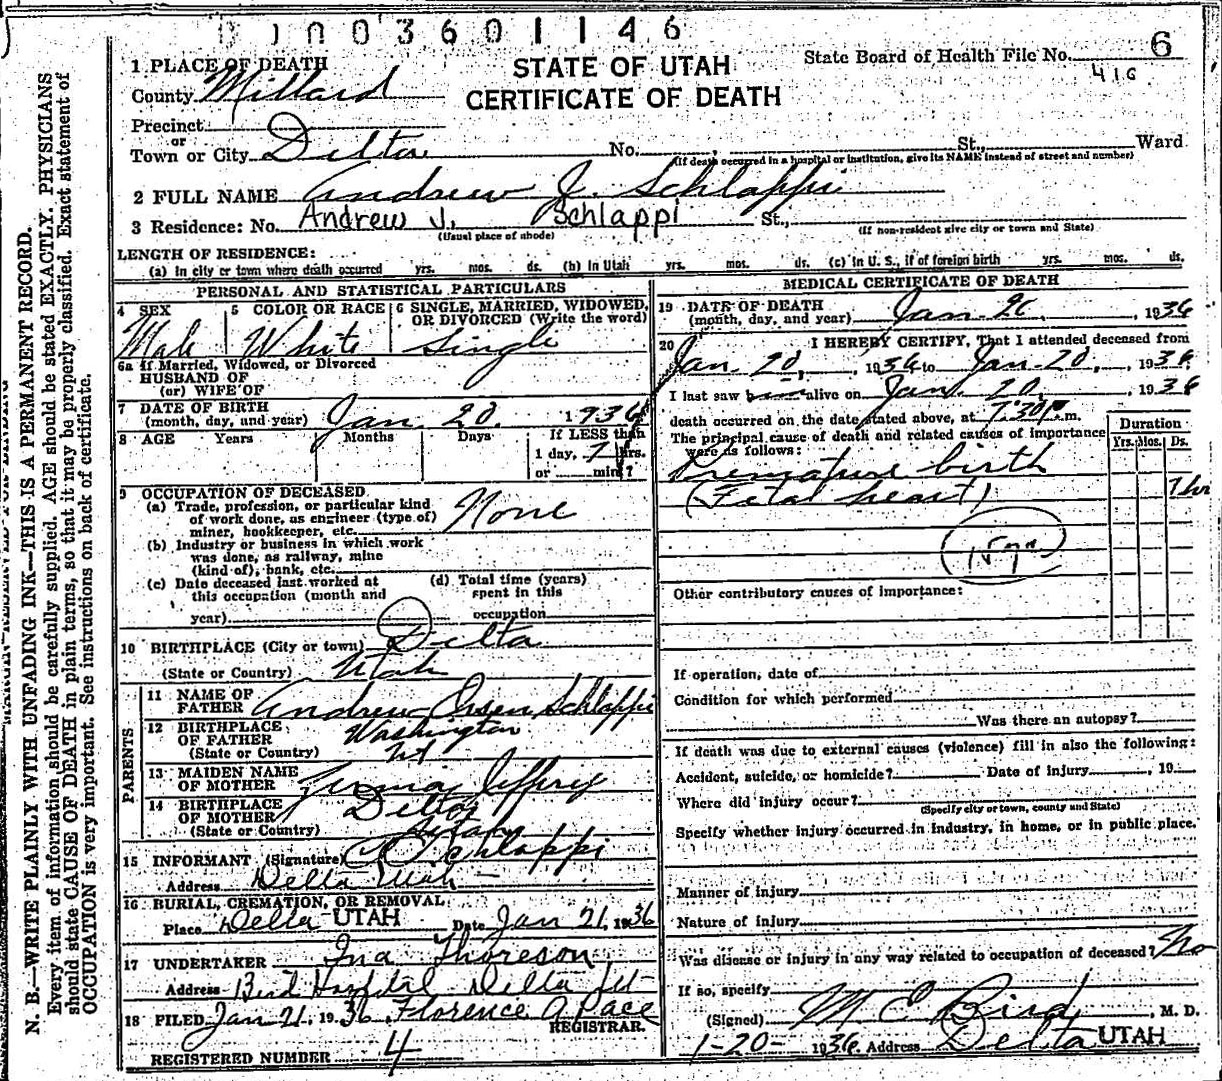 0003601146
State Board of Health File No. 6
416
STATE OF UTAH
CERTIFICATE OF DEATH
1 PLACE OF DEATH
County Millard
Precinct
or
Town or City Delta No. St., Ward
(If death occurred in a hospital or institution, give its NAME instead of street and number)
2 FULL NAME Andrew J. Schlappi
3 Residence: No. Andrew J. Schlappi St.,
(Usual place of abode) (If non-resident give city or town and State)
LENGTH OF RESIDENCE:
(a) In city or town where death occurred yrs. mos. ds. (b) In Utah yrs. mos. ds. (c) In U. S., if of foreign birth yrs. mos. ds.
PERSONAL AND STATISTICAL PARTICULARS
4 SEX 5 COLOR OR RACE 6 SINGLE, MARRIED, WIDOWED, OR DIVORCED (Write the word)
Male White Single
6a If Married, Widowed, or Divorced
HUSBAND OF
(or) WIFE OF
7 DATE OF BIRTH
(month, day, and year) Jan. 20. 1936
8 AGE Years Months Days If LESS than
1 day, 7 hrs.
or min?
9 OCCUPATION OF DECEASED
(a) Trade, profession, or particular kind
of work done, as engineer (type of)
miner, bookkeeper, etc. None
(b) Industry or business in which work
was done, as railway, mine
(kind of), bank, etc.
(c) Date deceased last worked at (d) Total time (years)
this occupation (month and spent in this
year) occupation
10 BIRTHPLACE (City or town) Delta
(State or Country) Utah
PARENTS
11 NAME OF
FATHER Andrew Orsen Schlappi
12 BIRTHPLACE
OF FATHER Washington
(State or Country) Ut
13 MAIDEN NAME
OF MOTHER Jeffrey
14 BIRTHPLACE
OF MOTHER Delta
(State or Country) Utah
15 INFORMANT (Signature) Schlappi
Address Delta Utah
16 BURIAL, CREMATION, OR REMOVAL
Place Delta UTAH Date Jan 21, 1936
17 UNDERTAKER Ina Thoreson
Address Bird Hospital Delta Ut
18 FILED Jan 21, 1936 Florence A Pace
REGISTRAR.
REGISTERED NUMBER 4
MEDICAL CERTIFICATE OF DEATH
19 DATE OF DEATH
(month, day, and year) Jan 20, 1936
20 I HEREBY CERTIFY, That I attended deceased from
Jan. 20, 1936 to Jan. 20, 1936
I last saw him alive on Jan. 20, 1936
death occurred on the date stated above, at 7:30 P.m.
The principal cause of death and related causes of importance
were as follows:
Duration
Yrs. Mos. Ds.
Premature birth
(Fetal heart) 7 hr
Other contributory causes of importance:
If operation, date of
Condition for which performed
Was there an autopsy?
If death was due to external causes (violence) fill in also the following:
Accident, suicide, or homicide? Date of injury , 19
Where did injury occur?
(Specify city or town, county and State)
Specify whether injury occurred in industry, in home, or in public place.
Manner of injury
Nature of injury
Was disease or injury in any way related to occupation of deceased? No
If so, specify
(Signed) M E Bird, M. D.
1-20- 1936. Address Delta UTAH
N. B.—WRITE PLAINLY WITH UNFADING INK—THIS IS A PERMANENT RECORD.
Every item of information should be carefully supplied. AGE should be stated EXACTLY. PHYSICIANS
should state CAUSE OF DEATH in plain terms, so that it may be properly classified. Exact statement of
OCCUPATION is very important. See instructions on back of certificate.